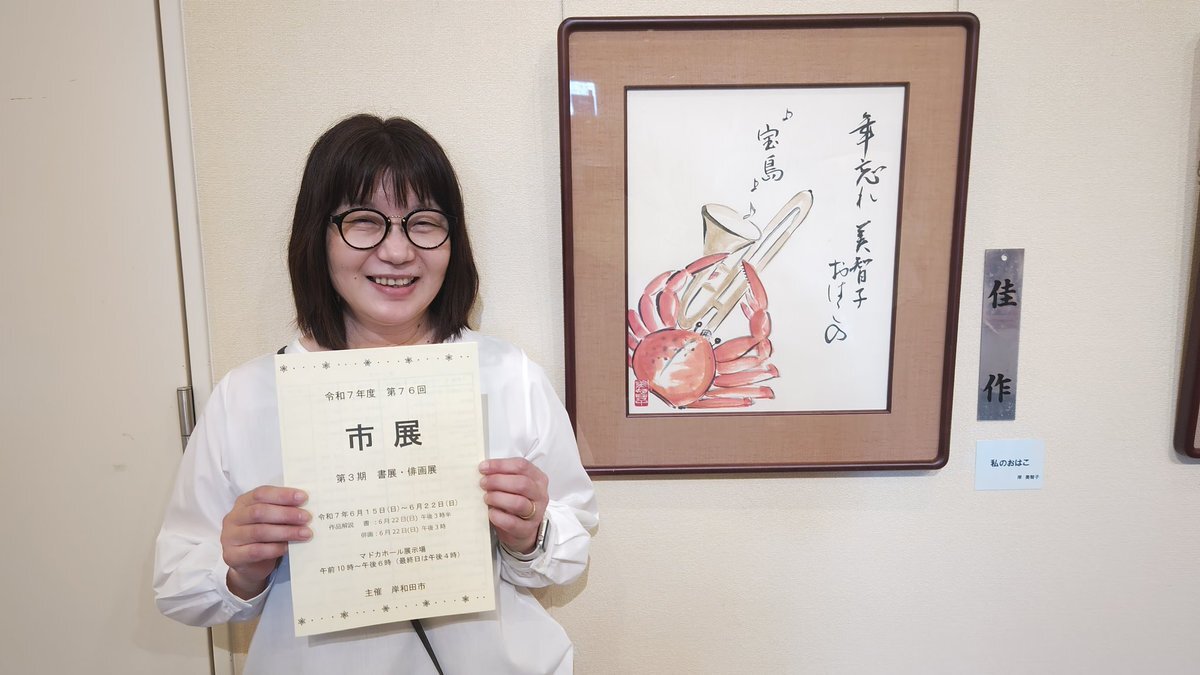 令和7年度 第76回
市展
第3期 書展・俳画展
令和7年6月15日(日)~6月22日(日)
作品解説 書:6月22日(日) 午後3時半
俳画:6月22日(日) 午後3時
マドカホール展示場
午前10時~午後6時(最終日は午後4時)
主催 岸和田市
年忘れ 美智子
おはこの
宝島
佳作
私のおはこ
岸 美智子